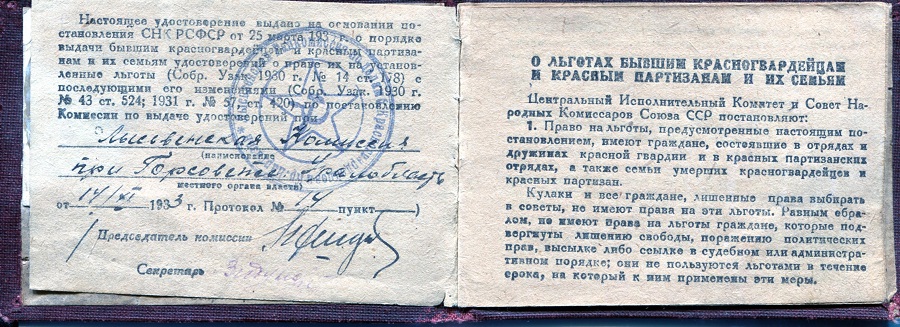 Настоящее удостоверение выдано на основании по-
становления СНК РСФСР от 25 марта 193 г. о порядке
выдачи бывшим красногвардейцам и красным партиза-
нам и их семьям удостоверений о праве их на установ-
ленные льготы (Собр. Узак. 1930 г. № 14 ст. 178) с
последующими его изменениями (Собр. Узак. 1930 г.
№ 43 ст. 524; 1931 г. № 57, ст. 420) по постановлению
Комиссии по выдаче удостоверений при
Лысьвенская Комиссия
(наименование
при Горсовете
местного органа власти)
от 14/XI 1933 г. Протокол № 14 пункт —)
Председатель комиссии
Секретарь
О ЛЬГОТАХ БЫВШИМ КРАСНОГВАРДЕЙЦАМ
И КРАСНЫМ ПАРТИЗАНАМ И ИХ СЕМЬЯМ
Центральный Исполнительный Комитет и Совет На-
родных Комиссаров Союза ССР постановляют:
1. Право на льготы, предусмотренные настоящим по-
становлением, имеют граждане, состоявшие в отрядах и
дружинах красной гвардии и в красных партизанских
отрядах, а также семьи умерших красногвардейцев и
красных партизан.
Кулаки и все граждане, лишенные права выбирать
в советы, не имеют права на эти льготы. Равным обра-
лом, не имеют права на льготы граждане, которые под-
вергнуты лишению свободы, поражению политических
прав, высылке либо ссылке в судебном или админист-
ративном порядке; они не пользуются льготами в течение
срока, на который к ним применены эти меры.